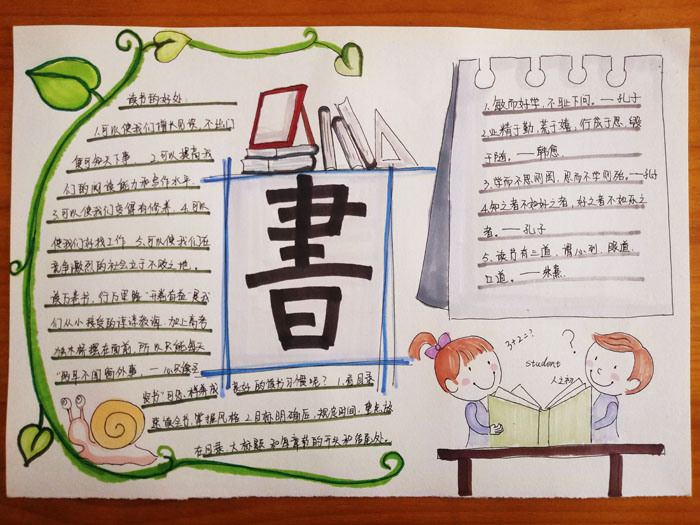 读书的好处:
1.可以使我们增长见识,不出门
便可知天下事 2.可以提高我
们的阅读能力和写作水平
3.可以使我们变得有修养 4.可以
使我们好找工作 5.可以使我们在
竞争激烈的社会立于不败之地。
读万卷书,行万里路"开卷有益"是我
们从小接受的谆谆教诲,加上高考
独木桥摆在面前,所以只能每天
"两耳不闻窗外事,一心只读
书"可是,怎样
良好的读书习惯呢? 1.看目录
读全书,掌握风格 2.目标明确后,规定时间,
在目录 大标题 和每章节的开头和结尾处。
書
1.敏而好学,不耻下问。——孔子
2.业精于勤,荒于嬉,行成于思,毁
于随。——韩愈
3.学而不思则罔,思而不学则殆。——孔子
4.知之者不如好之者,好之者不如乐之
者。——孔子
5.读书有三道,谓心到,眼道,
口道。——朱熹
3+2=?
?
student
人之初